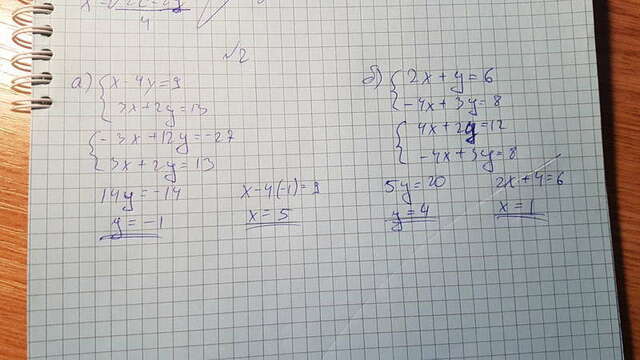 4
√2
а) { x - 4y = 9
3x + 2y = 13
{ - 3x + 12y = -27
3x + 2y = 13
14y = -14
y = -1
x - 4(-1) = 9
x = 5
б) { 2x + y = 6
- 4x + 3y = 8
{ 4x + 2y = 12
- 4x + 3y = 8
5y = 20
y = 4
2x + 4 = 6
x = 1